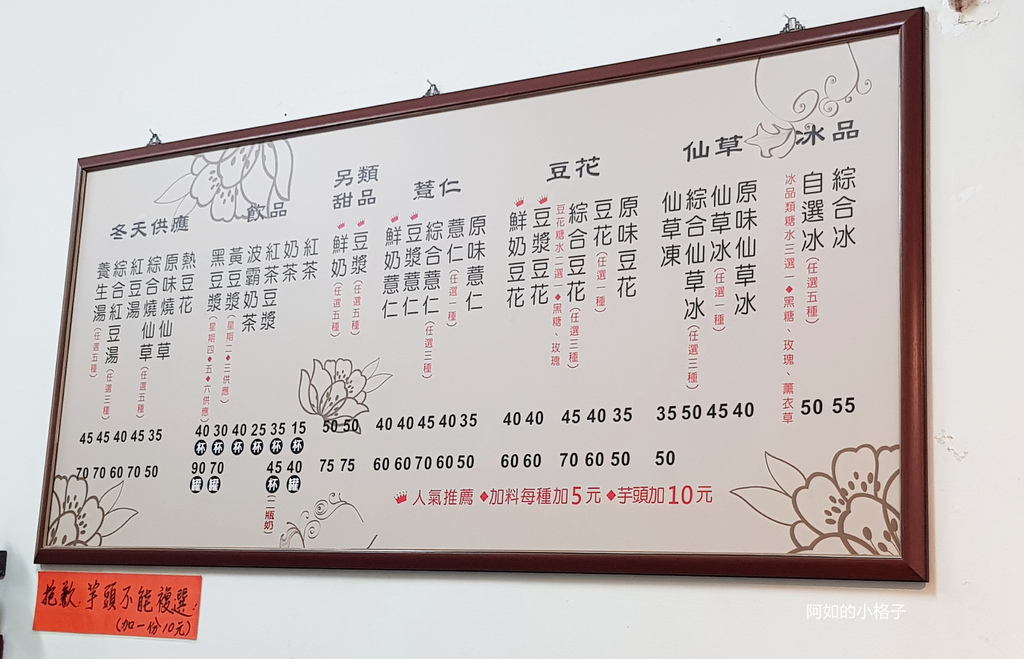 冰品
綜合冰
自選冰(任選五種)
冰品類糖水三選一◆黑糖、玫瑰、薰衣草
55
50
仙草
原味仙草冰
仙草冰(任選一種)
綜合仙草冰(任選三種)
仙草凍
35 50 45 40
50
豆花
原味豆花
豆花(任選一種)
綜合豆花(任選三種)
豆花糖水二選一◆黑糖、玫瑰
豆漿豆花
鮮奶豆花
40 40 45 40 35
60 60 70 60 50
薏仁
原味薏仁
薏仁(任選一種)
綜合薏仁(任選三種)
豆漿薏仁
鮮奶薏仁
40 40 45 40 35
60 60 70 60 50
另類甜品
豆漿(任選五種)
鮮奶(任選五種)
50 50
75 75
飲品
紅茶
奶茶
紅茶豆漿
波霸奶茶
黃豆漿(星期二◆三供應)
黑豆漿(星期四◆五◆六供應)
40 30 40 25 35 15
杯 杯 杯 杯 杯 杯
90 70 45 40
罐 罐 杯 罐
(二瓶奶)
冬天供應
熱豆花
原味燒仙草
綜合燒仙草(任選五種)
紅豆湯
綜合紅豆湯(任選三種)
養生湯(任選五種)
45 45 40 45 35
70 70 60 70 50
人氣推薦 ◆加料每種加5元 ◆芋頭加10元
抱歉.芋頭不能複選.
(加一份10元)
阿如的小格子